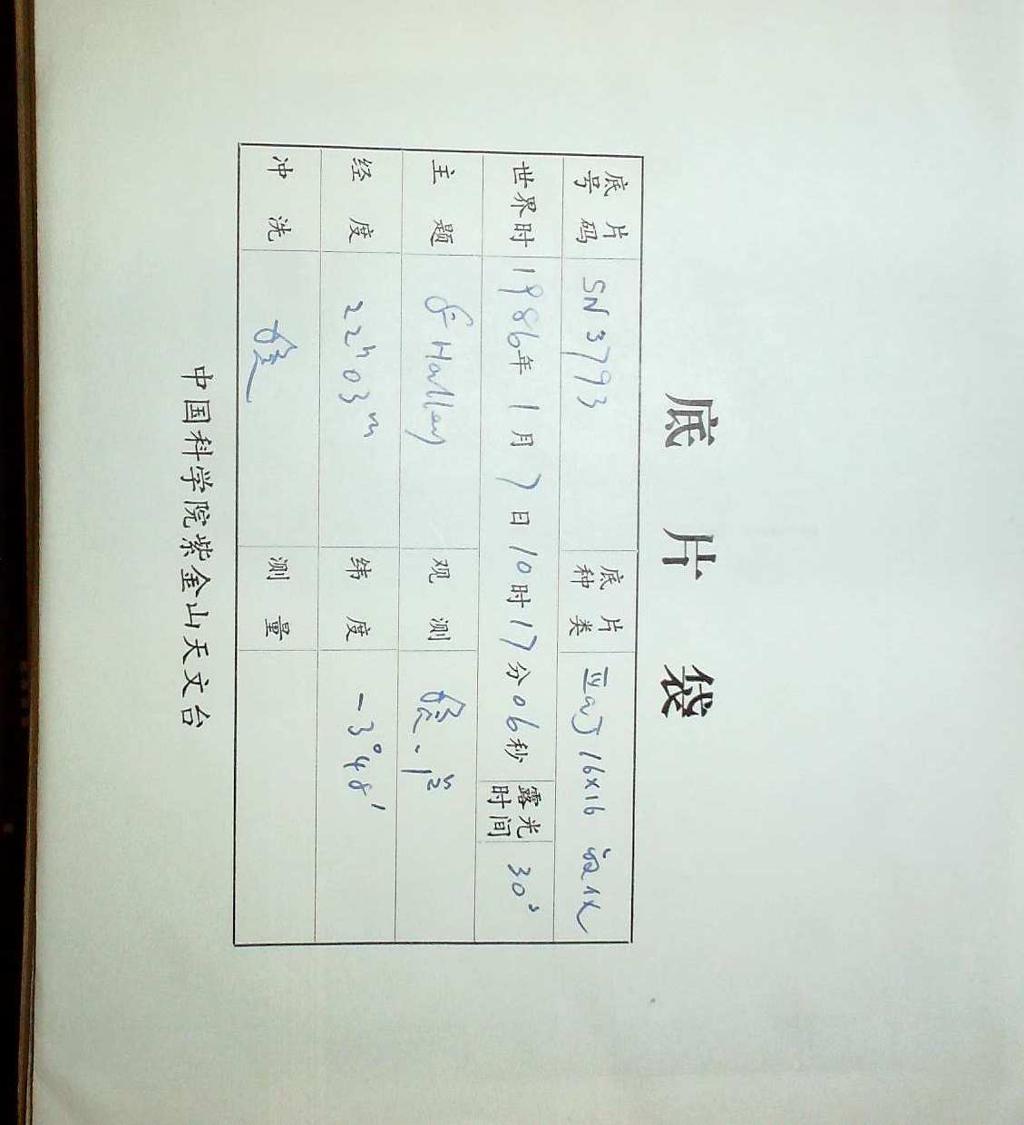 底片袋
底片号码 SN3793 底片种类 16×16
世界时 1986年1月7日10时17分06秒 露光时间 30ˢ
主题 Halley 观测
经度 22ʰ03ᵐ 纬度 -3°48′
冲洗 测量
中国科学院紫金山天文台